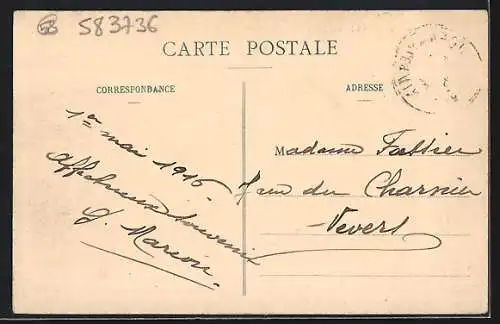 583736
CARTE POSTALE
CORRESPONDANCE
ADRESSE
1er mai 1916
Affectueux souvenir
G. Marion
Madame Fattier
7 rue du Charnier
Nevers